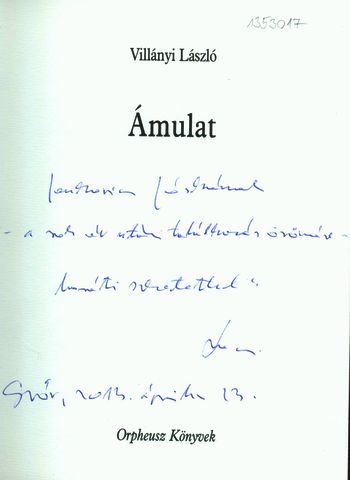 1353017
Villányi László
Ámulat
- a sok év utáni találkozás örömére -
baráti szeretettel:
Győr, 2013. április 23.
Orpheusz Könyvek